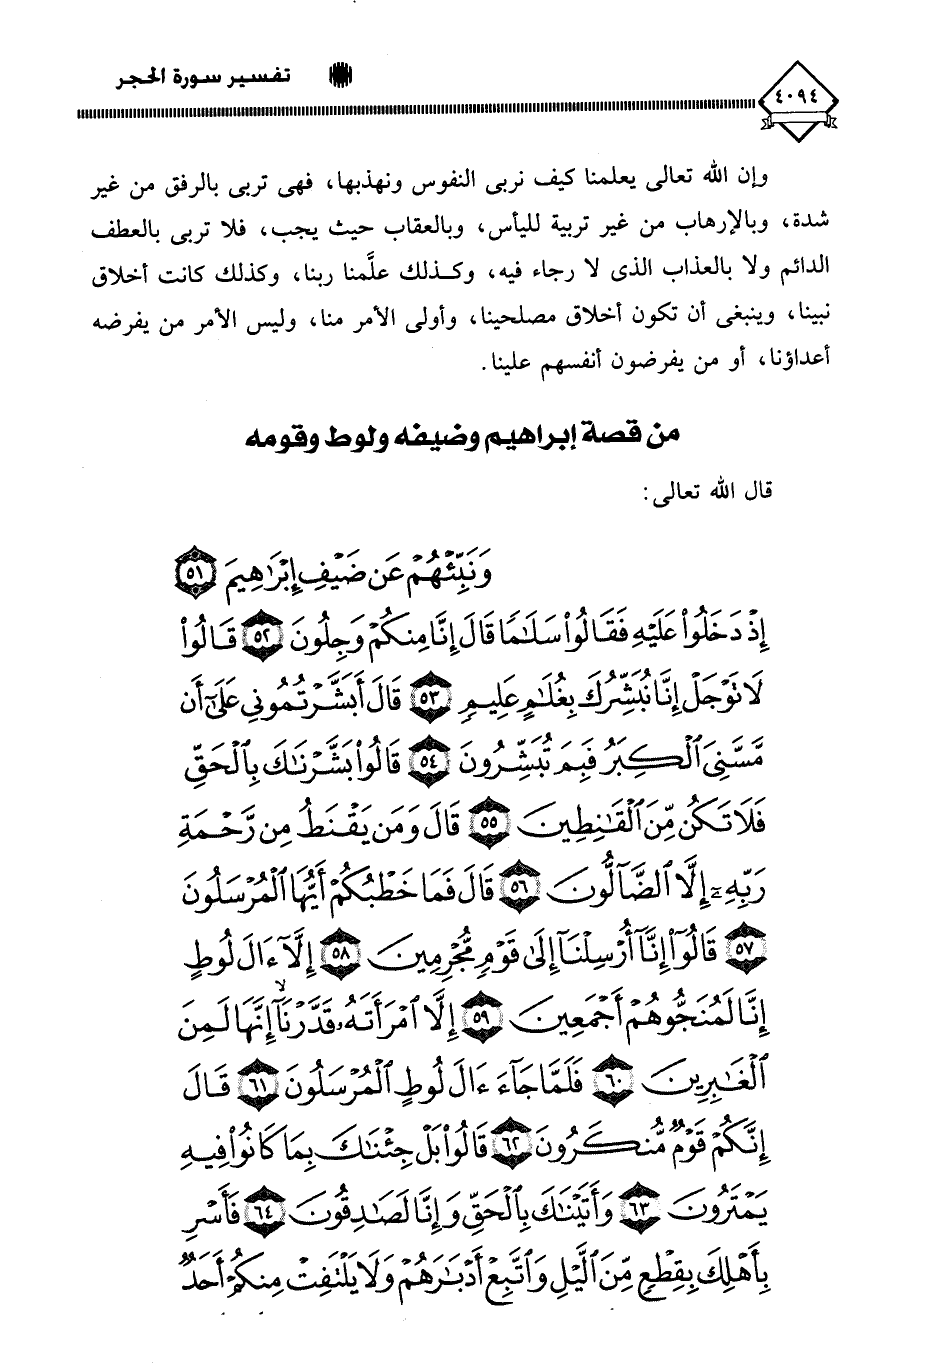 ٤٠٩٤
تفسير سورة الحجر
وإن الله تعالى يعلمنا كيف نربى النفوس ونهذبها، فهى تربى بالرفق من غير
شدة، وبالإرهاب من غير تربية لليأس، وبالعقاب حيث يجب، فلا تربى بالعطف
الدائم ولا بالعذاب الذى لا رجاء فيه، وكذلك علَّمنا ربنا، وكذلك كانت أخلاق
نبينا، وينبغى أن تكون أخلاق مصلحينا، وأولى الأمر منا، وليس الأمر من يفرضه
أعداؤنا، أو من يفرضون أنفسهم علينا.
من قصة إبراهيم وضيفه ولوط وقومه
قال الله تعالى:
وَنَبِّئْهُمْ عَن ضَيْفِ إِبْرَٰهِيمَ ٥١
إِذْ دَخَلُوا۟ عَلَيْهِ فَقَالُوا۟ سَلَـٰمًا قَالَ إِنَّا مِنكُمْ وَجِلُونَ ٥٢ قَالُوا۟
لَا تَوْجَلْ إِنَّا نُبَشِّرُكَ بِغُلَـٰمٍ عَلِيمٍ ٥٣ قَالَ أَبَشَّرْتُمُونِى عَلَىٰٓ أَن
مَّسَّنِىَ ٱلْكِبَرُ فَبِمَ تُبَشِّرُونَ ٥٤ قَالُوا۟ بَشَّرْنَـٰكَ بِٱلْحَقِّ
فَلَا تَكُن مِّنَ ٱلْقَـٰنِطِينَ ٥٥ قَالَ وَمَن يَقْنَطُ مِن رَّحْمَةِ
رَبِّهِۦٓ إِلَّا ٱلضَّآلُّونَ ٥٦ قَالَ فَمَا خَطْبُكُمْ أَيُّهَا ٱلْمُرْسَلُونَ
٥٧ قَالُوٓا۟ إِنَّآ أُرْسِلْنَآ إِلَىٰ قَوْمٍ مُّجْرِمِينَ ٥٨ إِلَّآ ءَالَ لُوطٍ
إِنَّا لَمُنَجُّوهُمْ أَجْمَعِينَ ٥٩ إِلَّا ٱمْرَأَتَهُۥ قَدَّرْنَآ ۙ إِنَّهَا لَمِنَ
ٱلْغَـٰبِرِينَ ٦٠ فَلَمَّا جَآءَ ءَالَ لُوطٍ ٱلْمُرْسَلُونَ ٦١ قَالَ
إِنَّكُمْ قَوْمٌ مُّنكَرُونَ ٦٢ قَالُوا۟ بَلْ جِئْنَـٰكَ بِمَا كَانُوا۟ فِيهِ
يَمْتَرُونَ ٦٣ وَأَتَيْنَـٰكَ بِٱلْحَقِّ وَإِنَّا لَصَـٰدِقُونَ ٦٤ فَأَسْرِ
بِأَهْلِكَ بِقِطْعٍ مِّنَ ٱلَّيْلِ وَٱتَّبِعْ أَدْبَـٰرَهُمْ وَلَا يَلْتَفِتْ مِنكُمْ أَحَدٌ